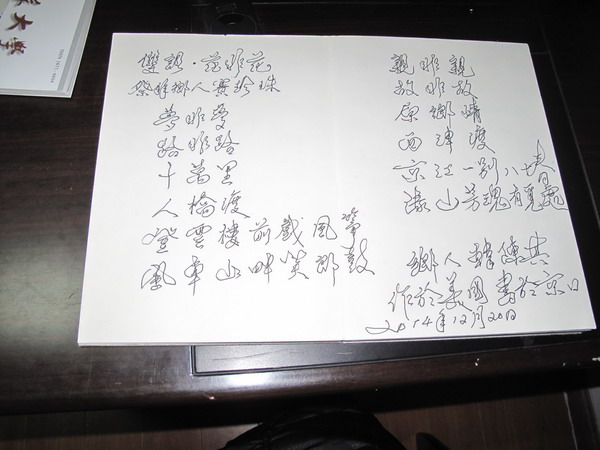 雙調·花非花
祭拜鄉人賽珍珠
夢非夢
路非路
十萬里
人橋渡
登雲樓前戲風箏
風車山畔笑郎鼓
親非親
故非故
原鄉情
西津渡
京江一別八十春
山芳魂有覓處
鄉人韓傳
作於美國書於京口
2014年12月20日